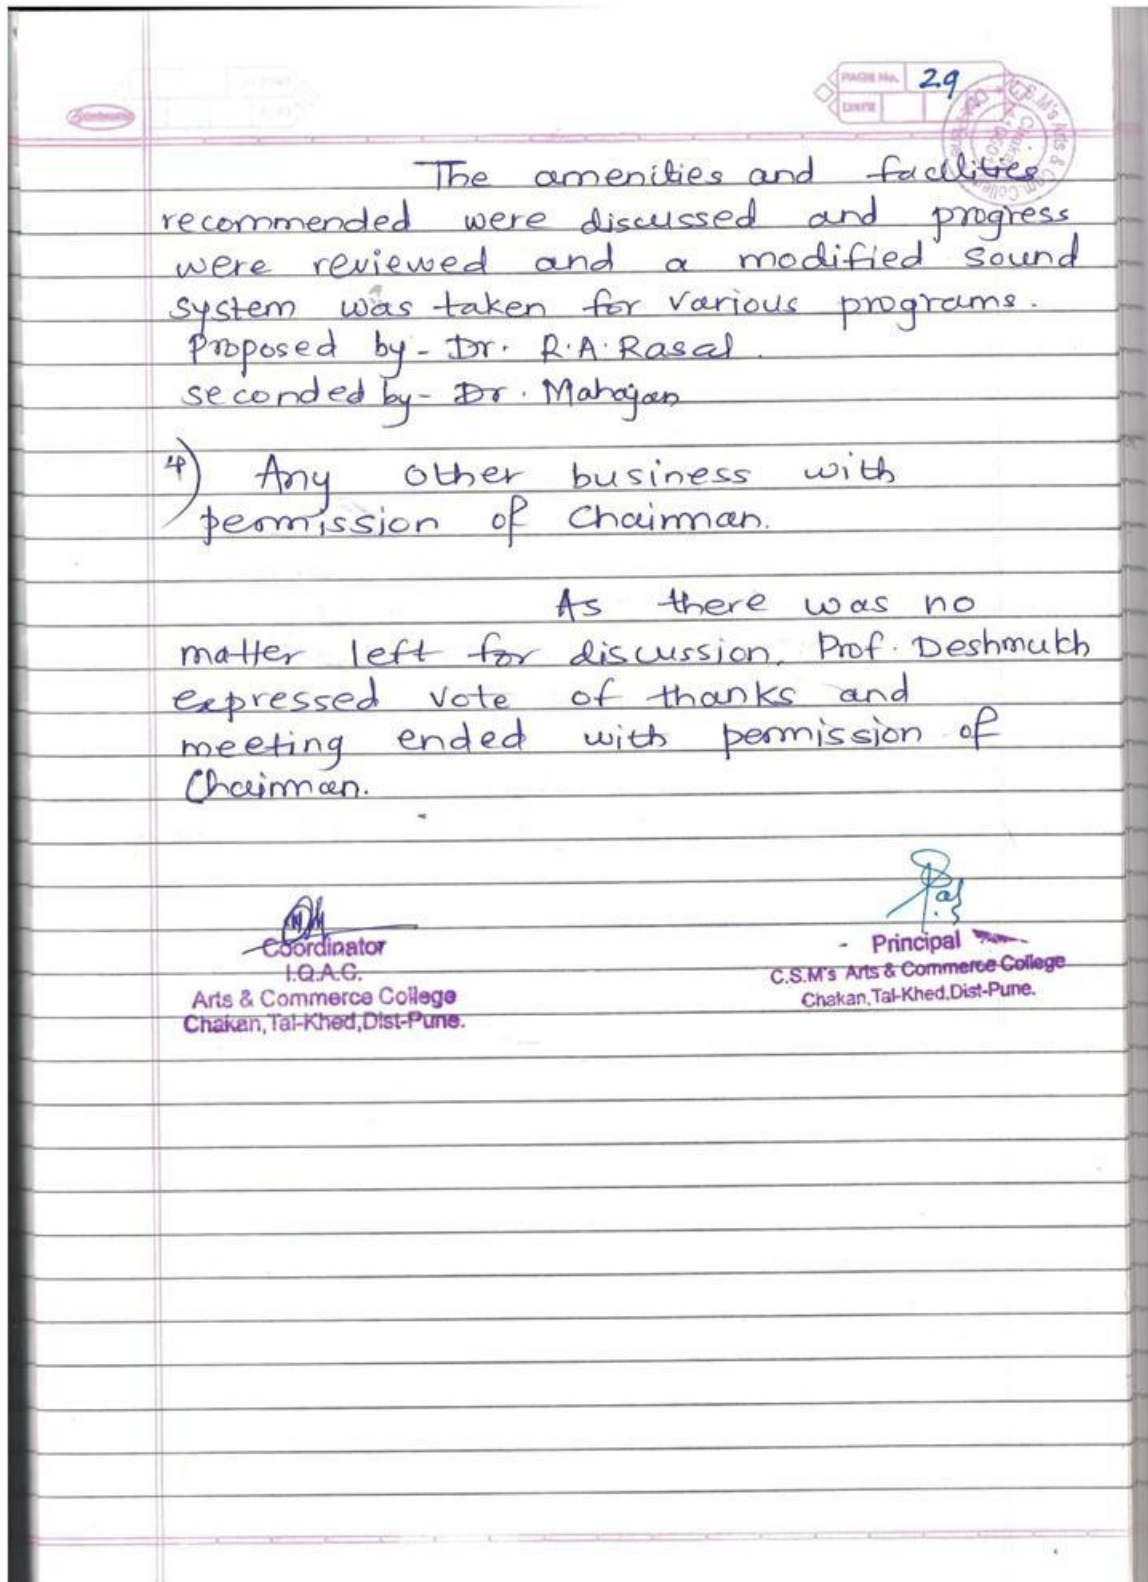 PAGE No. 29
DATE
The amenities and facilities
recommended were discussed and progress
were reviewed and a modified sound
system was taken for various programs.
Proposed by - Dr. R.A. Rasal.
seconded by - Dr. Mahajan
4) Any other business with
permission of Chairman.
As there was no
matter left for discussion, Prof. Deshmukh
expressed vote of thanks and
meeting ended with permission of
Chairman.
Coordinator
I.Q.A.C.
Arts & Commerce College
Chakan, Tal-Khed, Dist-Pune.
Principal
C.S.M's Arts & Commerce College
Chakan, Tal-Khed, Dist-Pune.